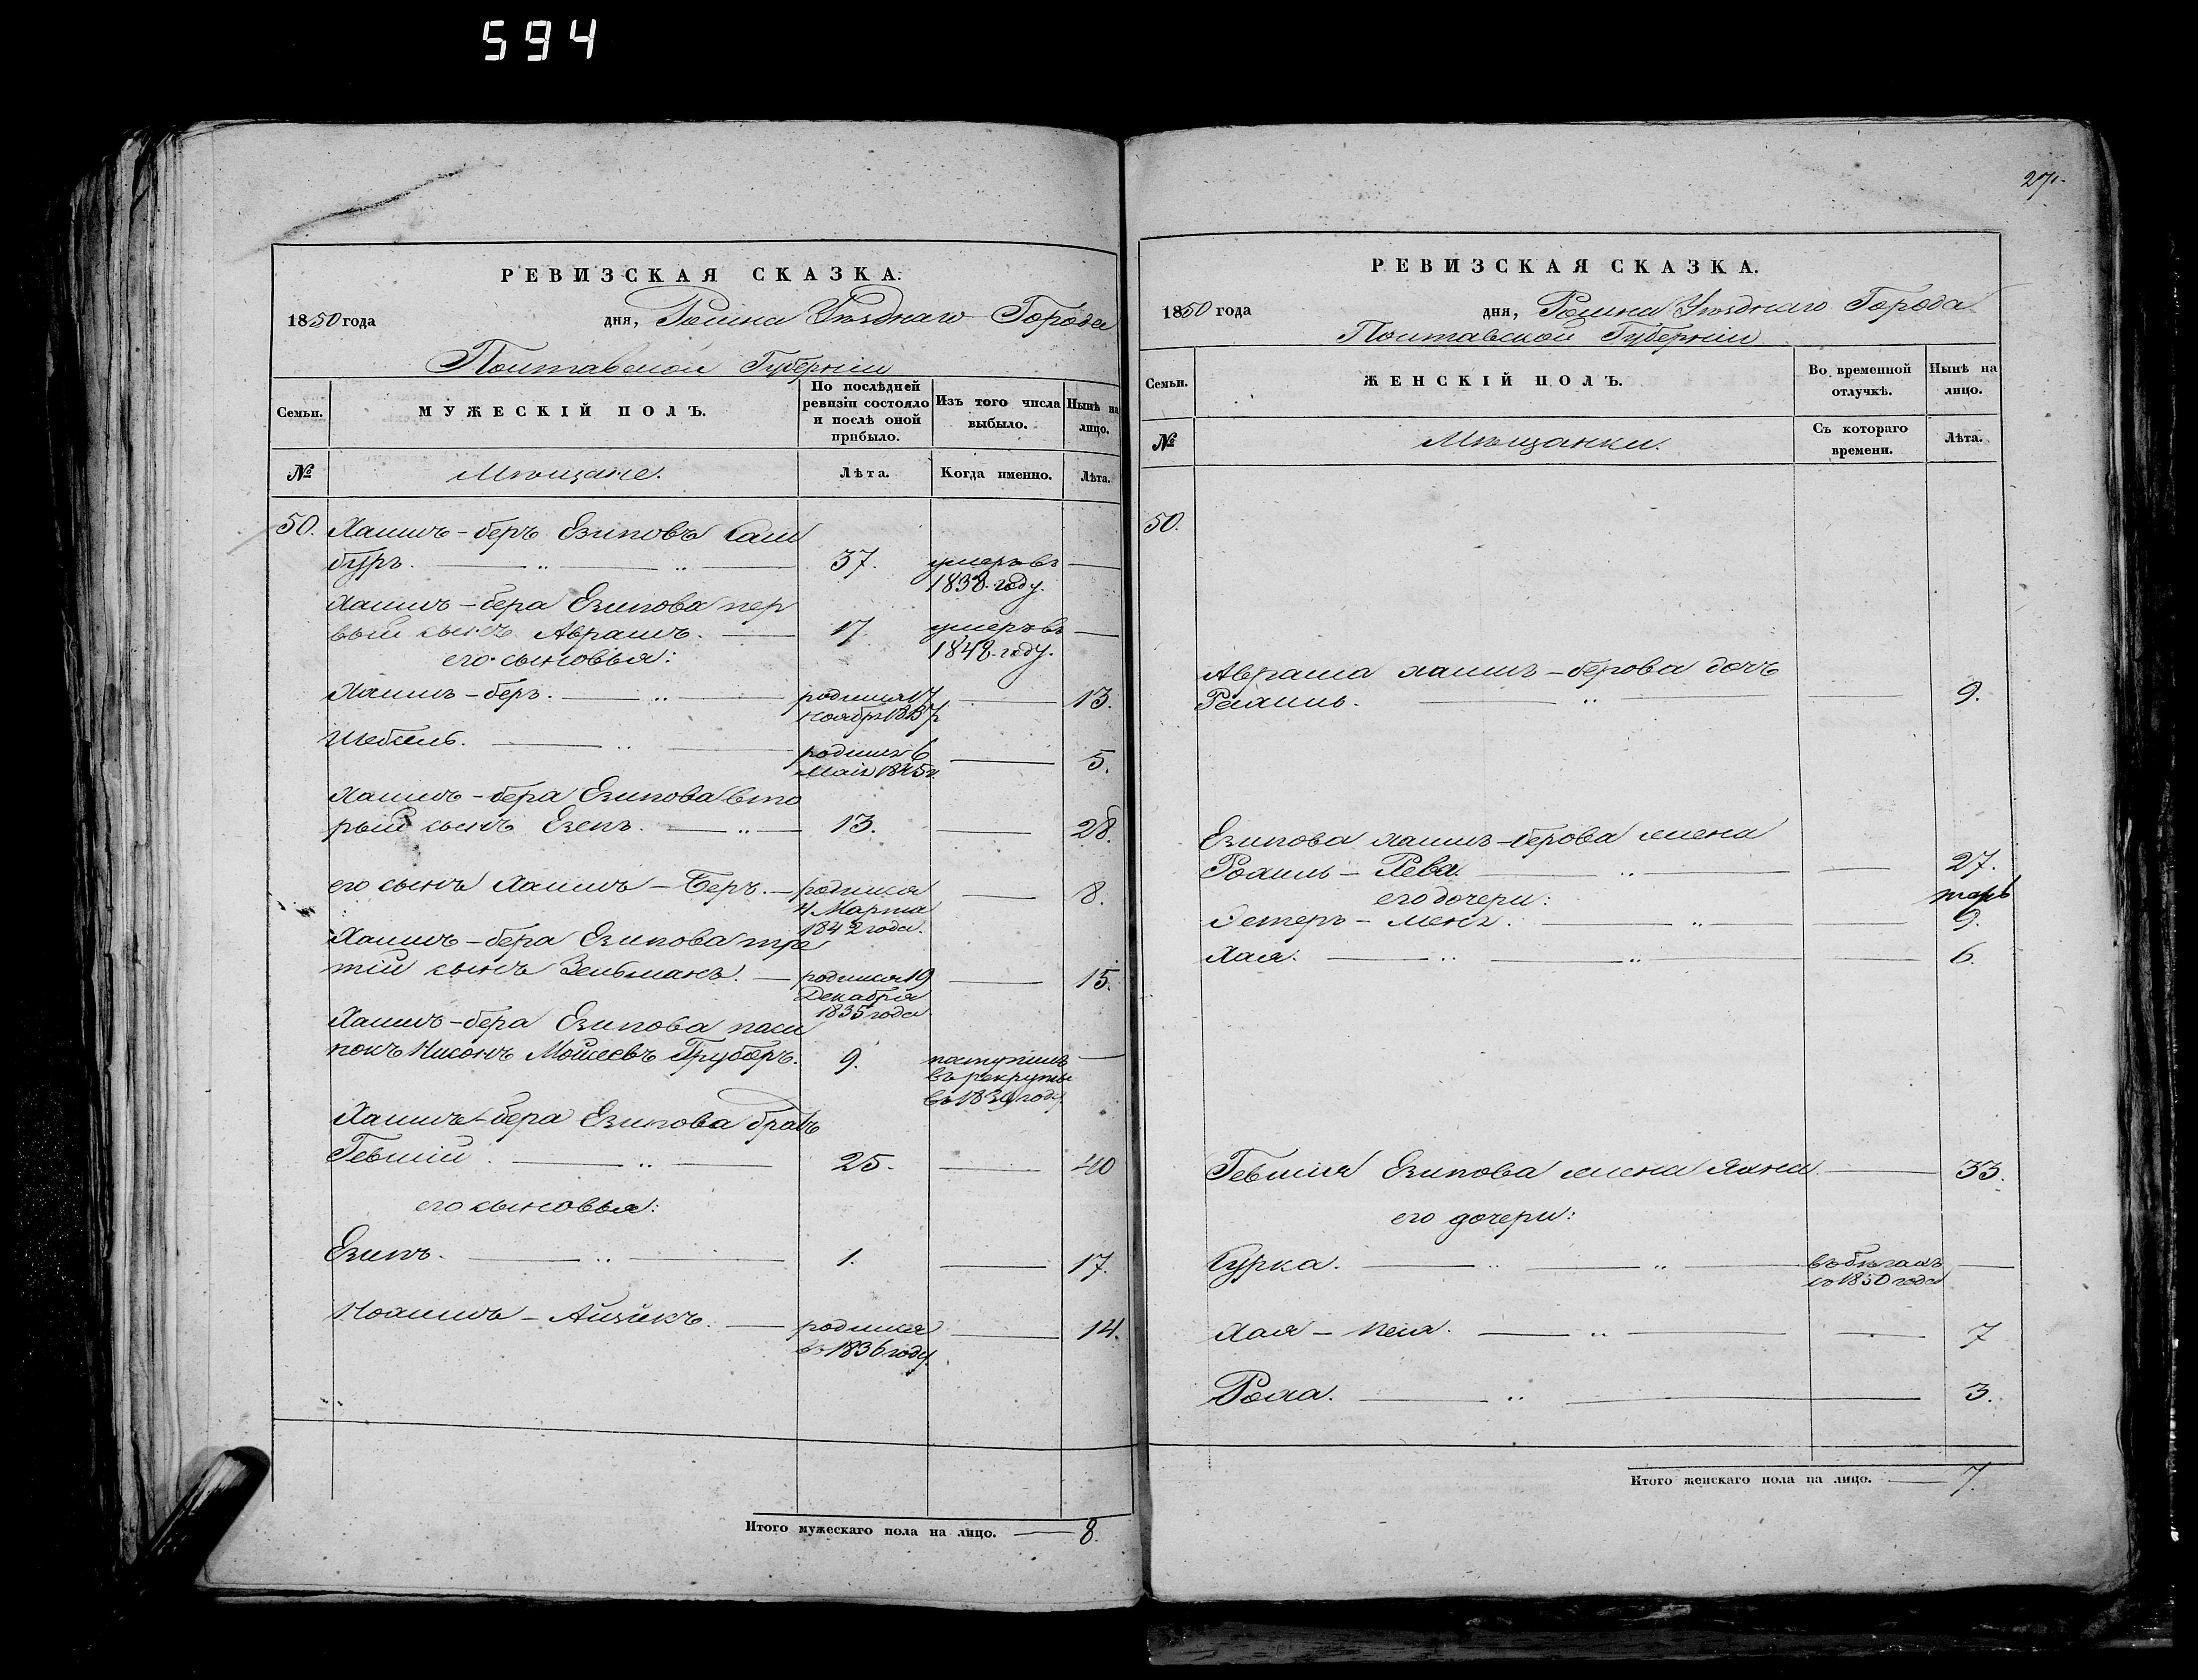 594
РЕВИЗСКАЯ СКАЗКА.
1850 года дня, Ромна Уѣзднаго Города
Полтавской Губерніи
Семьи.
МУЖЕСКІЙ ПОЛЪ.
По послѣдней
ревизіи состояло
и послѣ оной
прибыло.
Изъ того числа
выбыло.
Нынѣ на
лицо.
№
Мѣщане.
Лѣта.
Когда именно.
Лѣта.
50. Хаимъ-беръ Езиповъ
буръ. 37. умеръ въ
1838. году.
Хаимъ-бера Езипова пер
вый сынъ Аврамъ. 17. умеръ въ
1848. году.
его сыновья:
Хаимъ-беръ. родился 17 13.
ноября 1837
родился 6 5.
Маія 1845 г.
Хаимъ-бера Езипова вто
рый сынъ Езепъ. 13. 28.
его сынъ Хаимъ-Беръ. родился 8.
4 Марта
1842 года.
Хаимъ-бера Езипова тре
тій сынъ Зельманъ. родился 19 15.
Декабря
1835 года
Хаимъ-бера Езипова пасы
нокъ Нисонъ Мойсеевъ Груберъ. 9. поступилъ
въ рекруты
въ 1839 году
Хаимъ-бера Езипова братъ
Гевшій. 25. 40
его сыновья:
Езипъ. 1. 17.
Айзикъ. родился 14.
въ 1836 году.
Итого мужескаго пола на лицо. 8.
27.
РЕВИЗСКАЯ СКАЗКА.
1850 года дня, Ромна Уѣзднаго Города
Полтавской Губерніи
Семьи.
ЖЕНСКІЙ ПОЛЪ.
Во временной
отлучкѣ.
Нынѣ на
лицо.
№
Мѣщанки.
Съ котораго
времени.
Лѣта.
50.
Аврама хаимъ-берова дочь
9.
Езипова хаимъ-берова жена
Рева. 27.
его дочери:
Эстеръ- 9.
Хая. 6.
Гевшія Езипова жена Яхна 33.
его дочери:
Сурка. въ бѣгахъ
съ 1850 года
Хая- 7
3.
Итого женскаго пола на лицо. 7.